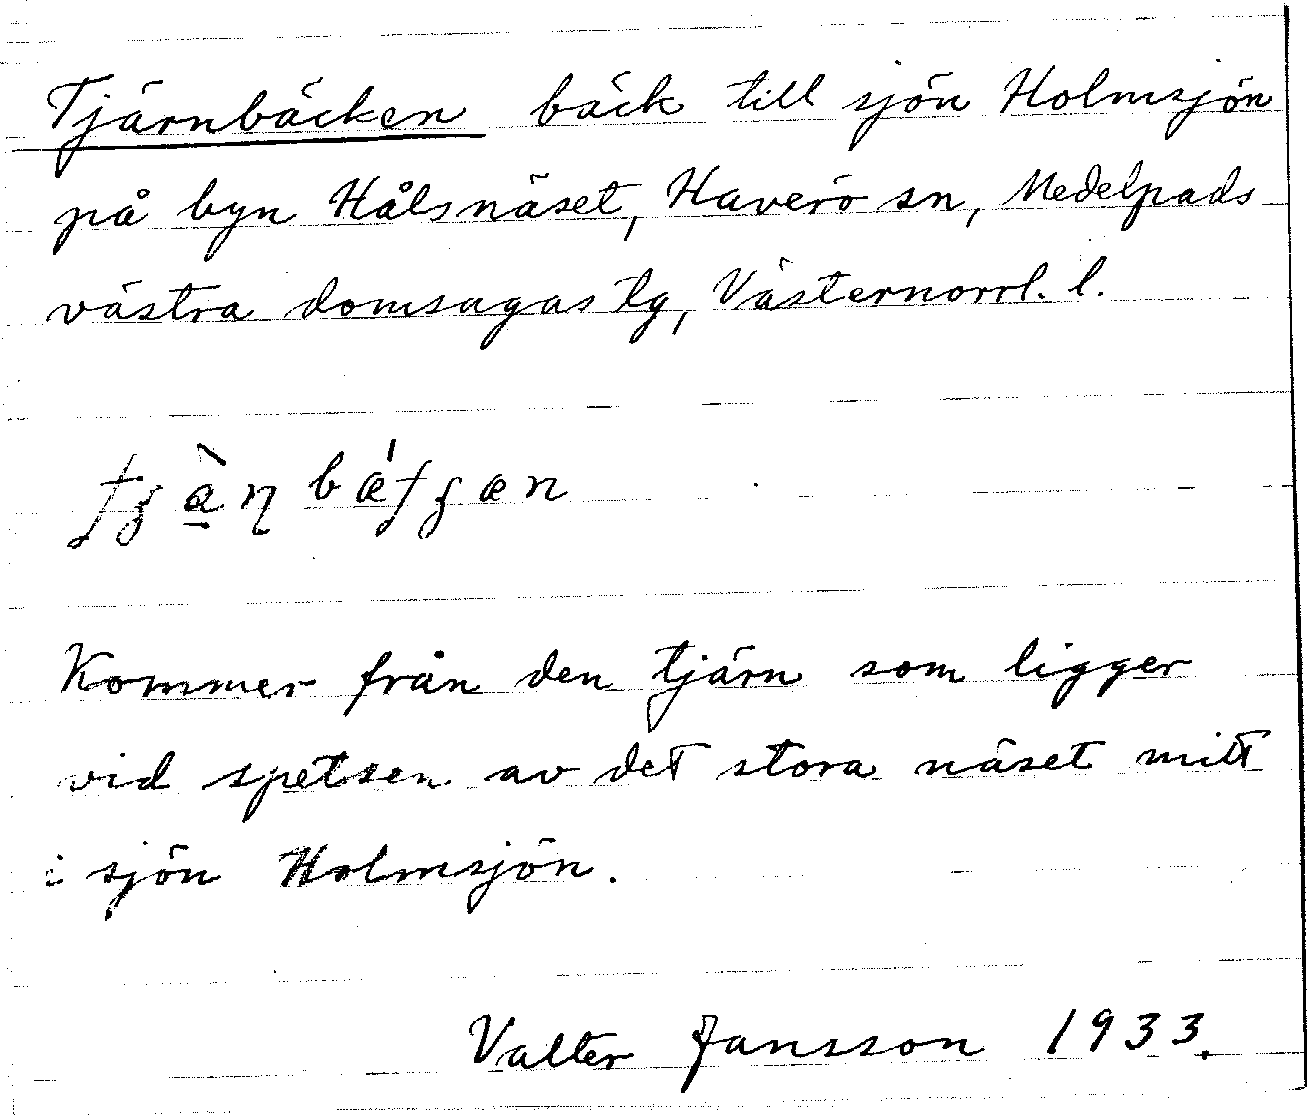 Tjärnbäcken bäck till sjön Holmsjön
på byn Hålsnäset, Haverö sn, Medelpads
västra domsagas tg, Västernorrl. l.
Kommer från den tjärn som ligger
vid spetsen av det stora näset mitt
i sjön Holmsjön.
Valter Jansson 1933.